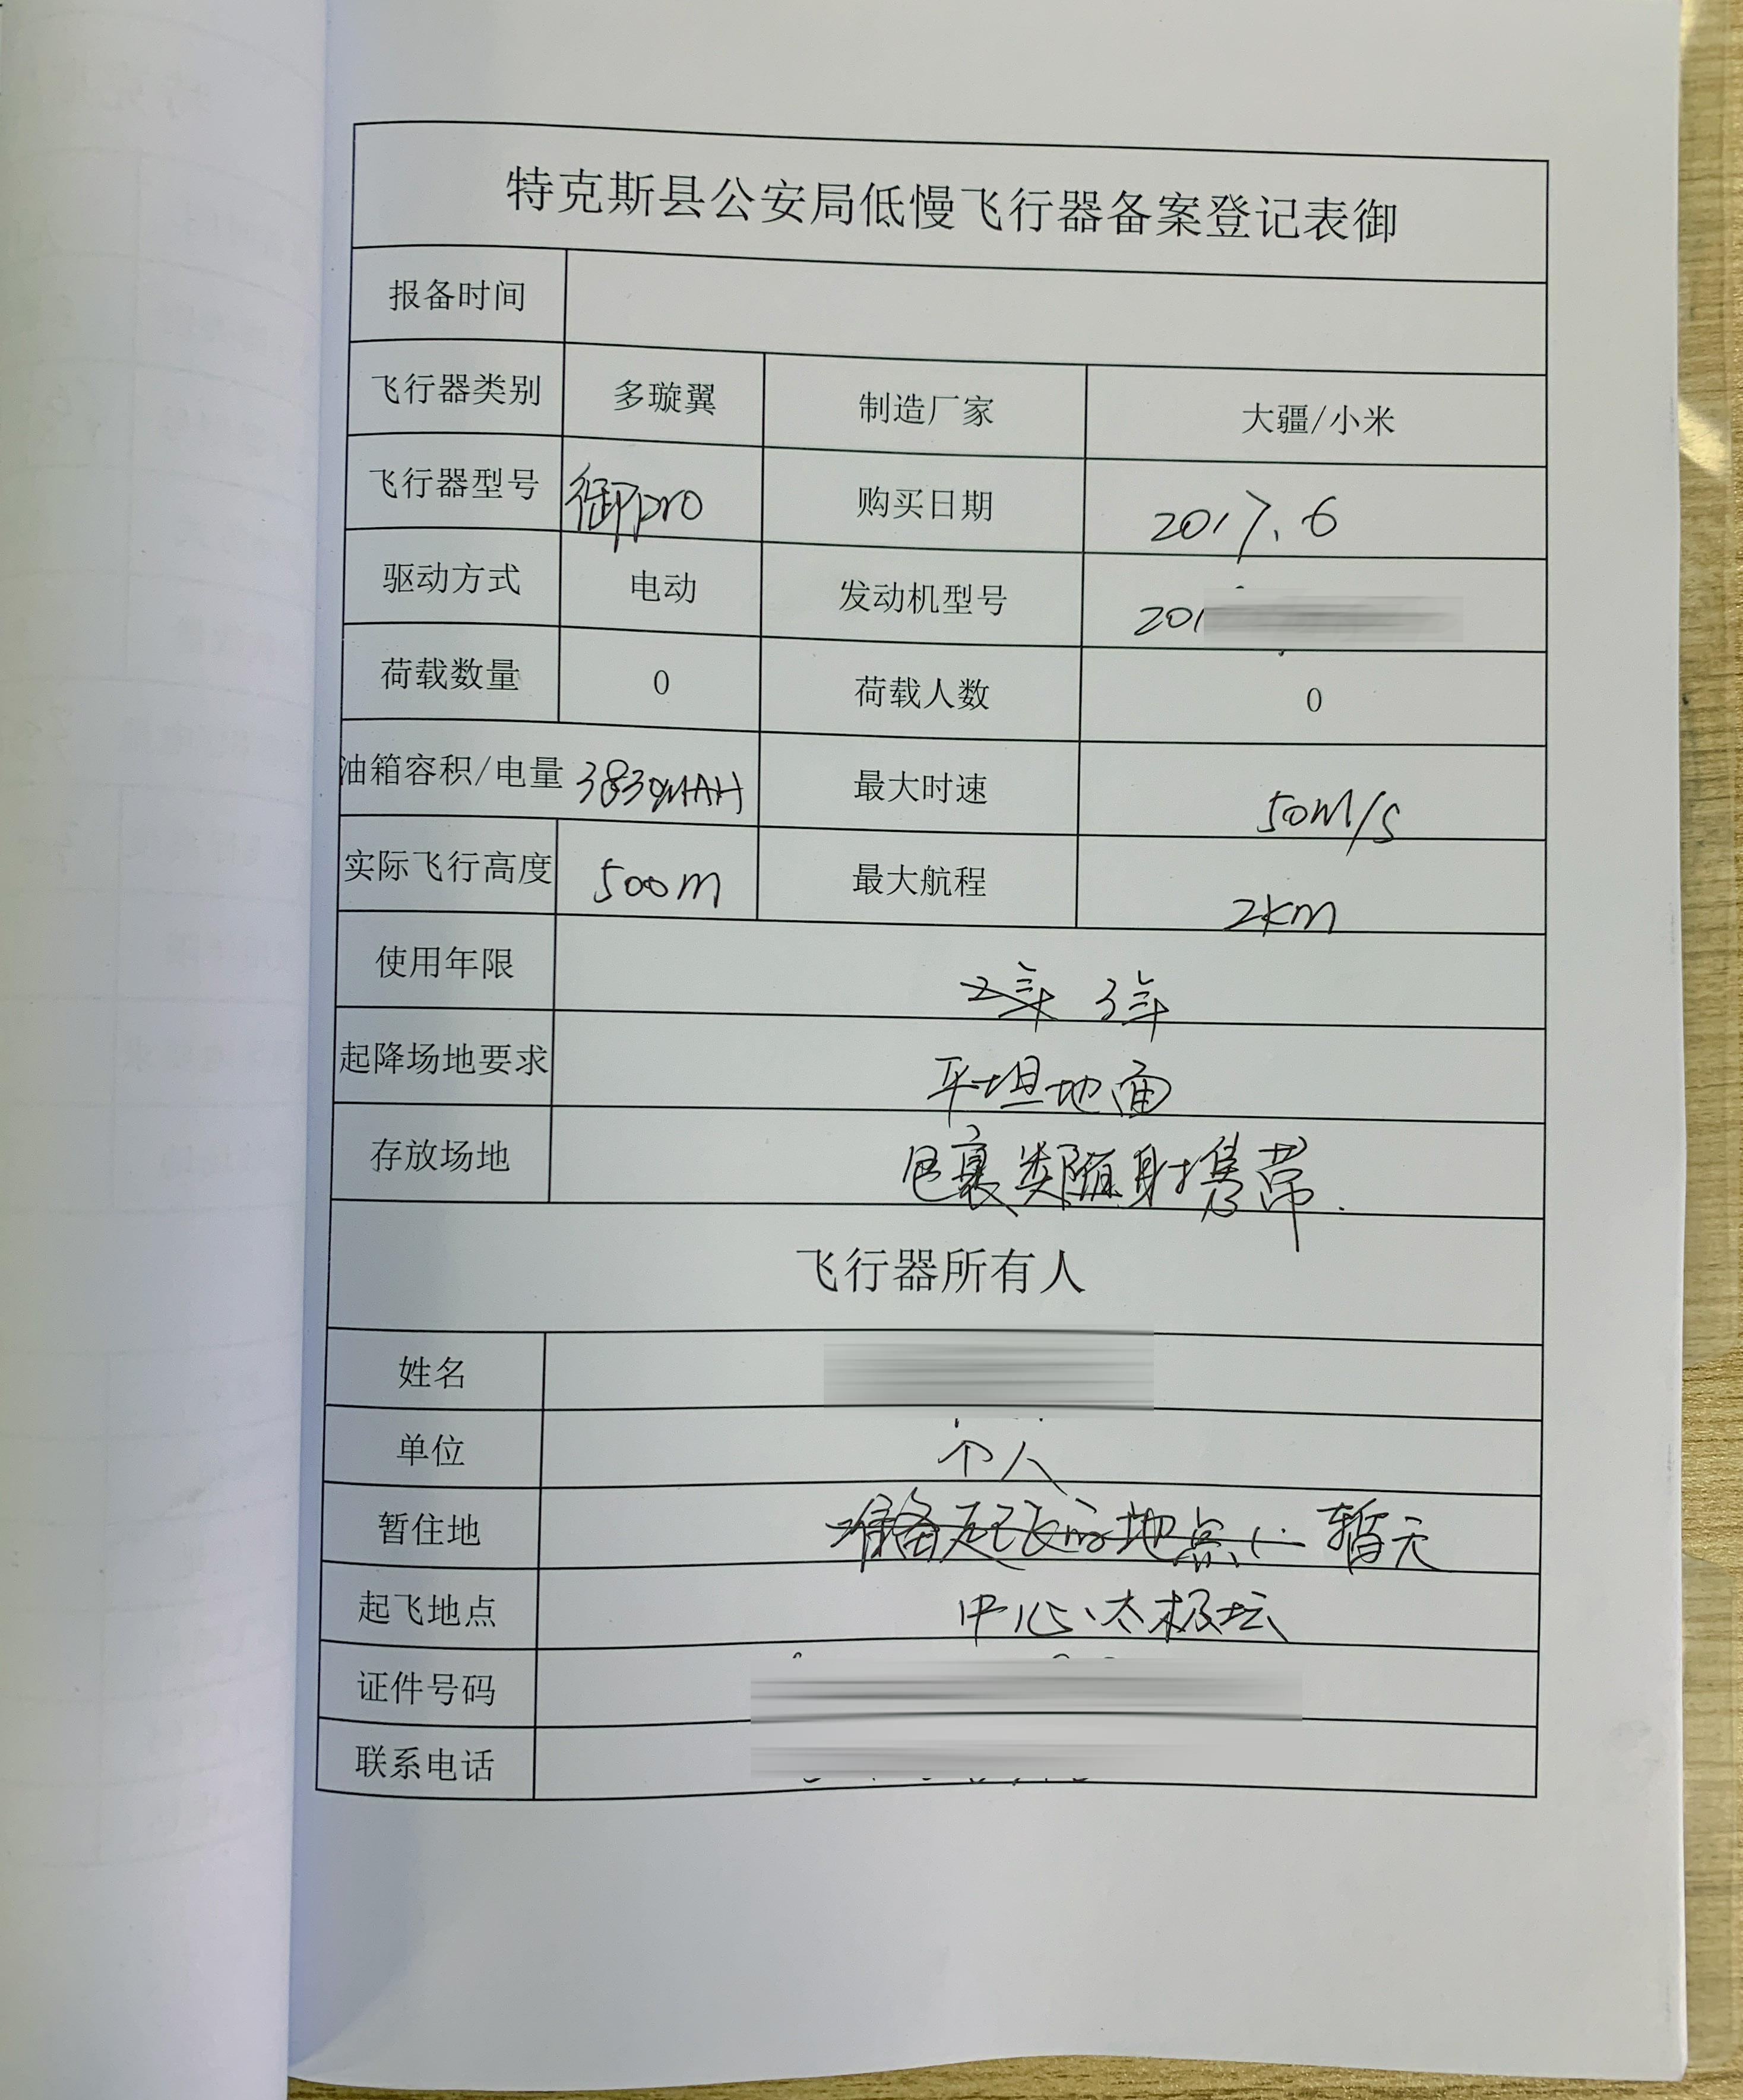 特克斯县公安局低慢飞行器备案登记表御
报备时间
飞行器类别 多璇翼 制造厂家 大疆/小米
飞行器型号 御pro 购买日期 2017.6
驱动方式 电动 发动机型号 201
荷载数量 0 荷载人数 0
油箱容积/电量 3830MAH 最大时速 50M/S
实际飞行高度 500m 最大航程 2km
使用年限 3年
起降场地要求 平坦地面
存放场地 包裹类随身携带.
飞行器所有人
姓名
单位 个人
暂住地 准备起飞的地点 暂无
起飞地点 中心、太极坛
证件号码
联系电话